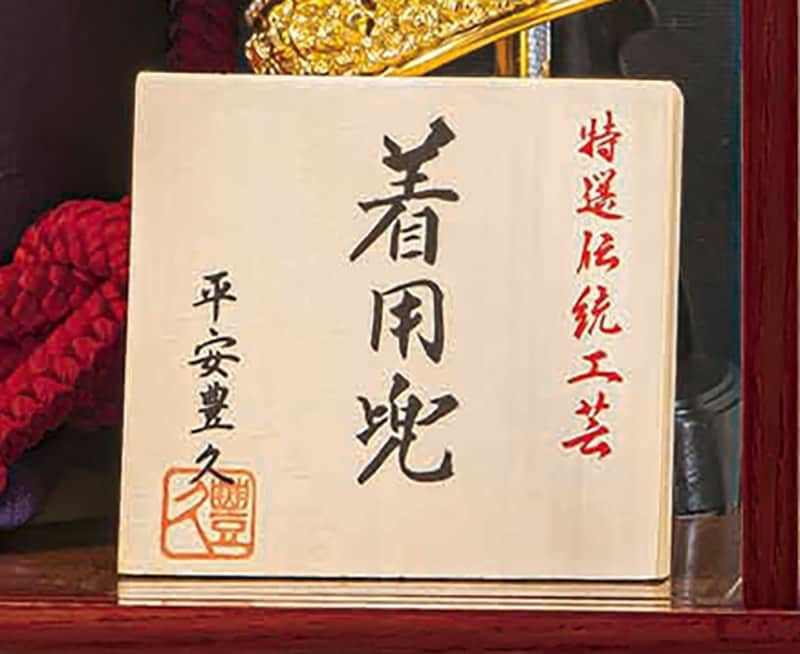 特選伝統工芸
着用兜
平安豊久
豐久